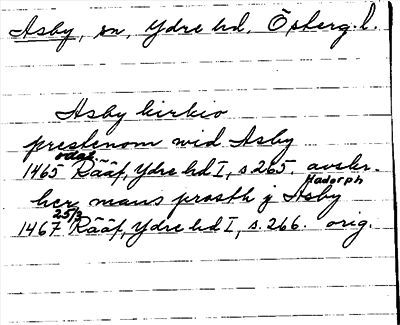 Asby, sn, Ydre hd, Österg. l.
Asby kirkio
prestenom wid Asby
odat.
1465 Rääf, Ydre hd I, s. 265 avskr.
Hadorph
her mans prosth j Asby
25/3
1467 Rääf, Ydre hd I, s. 266. orig.